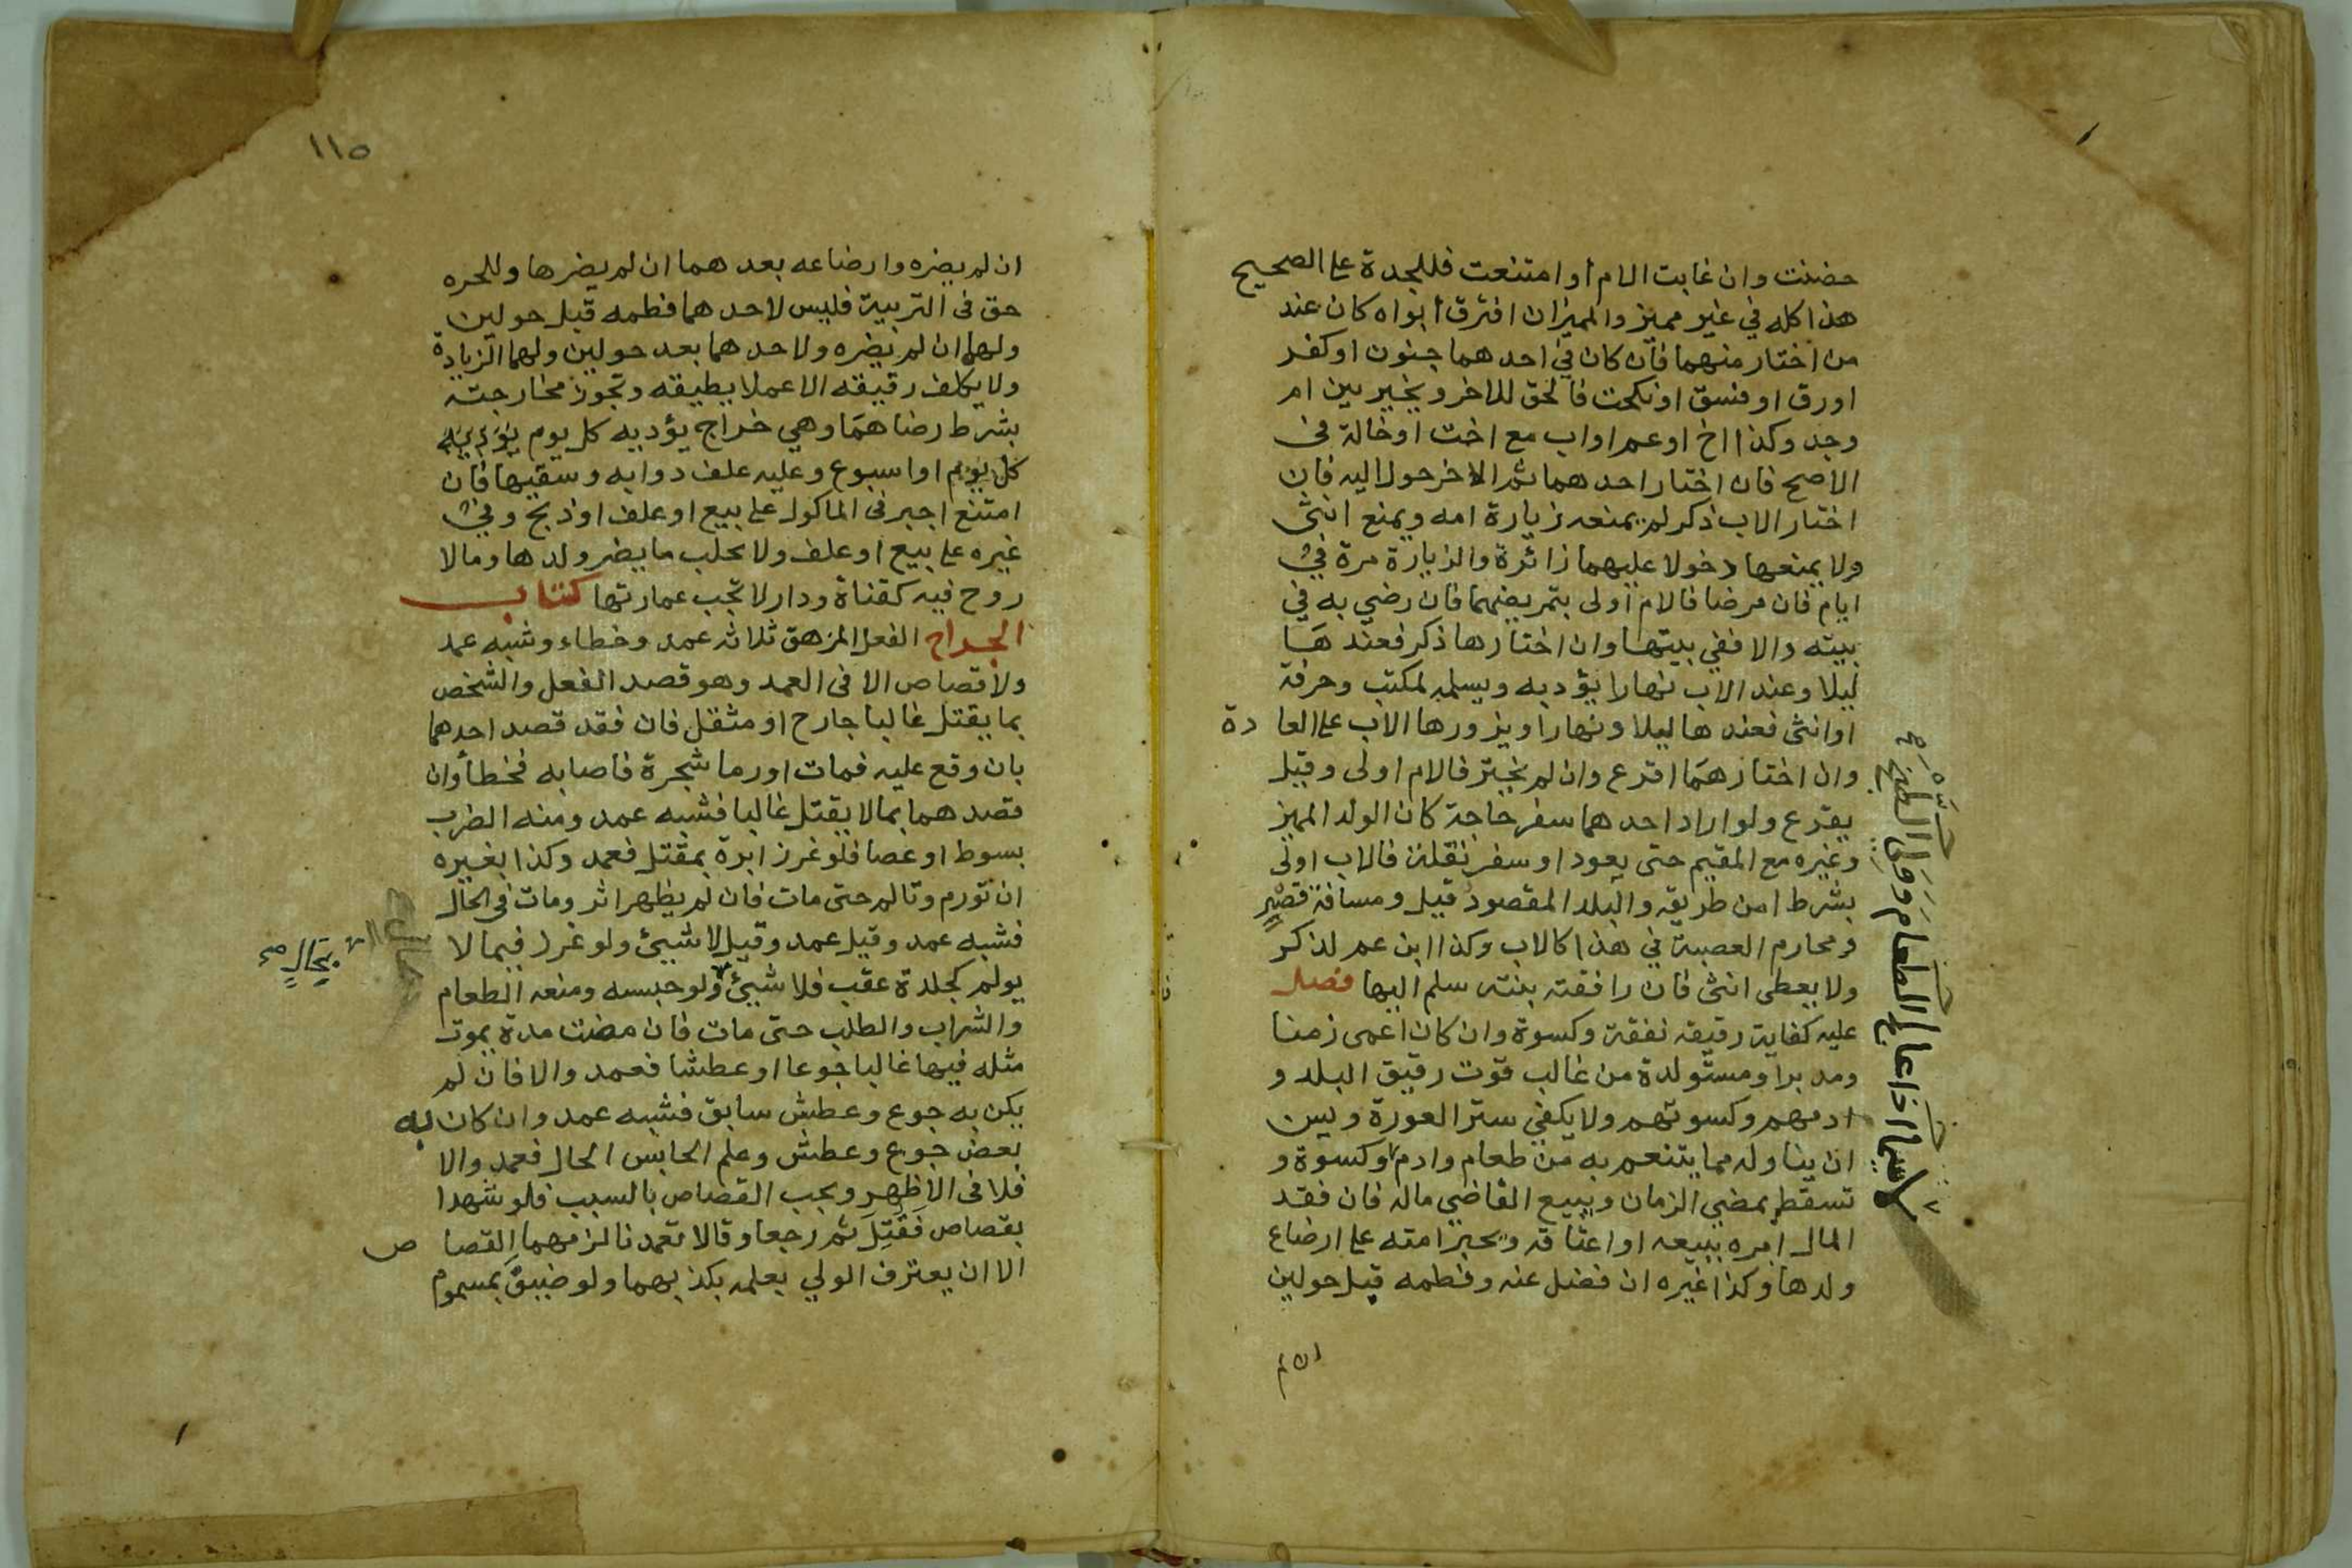 حضنت وان غابت الام أو امتنعت فللجدة على الصحيح
هذا كله في غير مميز والمميزان افترق أبواه كان عند
من اختار منهما فان كان في احدهما جنون او كفر
اورق او فسق او نكحت فالحق للاخر ويخير بين ام
وجد وكذا اخ او عم او اب مع اخت او خالة في
الاصح فان اختار احدهما ثم الاخر حول اليه فان
اختار الاب ذكر لم يمنعه زيارة امه ويمنع انثى
ولا يمنعها دخولا عليهما زائرة والزيارة مرة في
ايام فان مرضا فالام أولى بتمريضهما فان رضي به في
بيته والا ففي بيتها وان اختارها ذكر فعندها
ليلا وعند الاب نهارا يؤدبه ويسلمه لمكتب وحرفة
او انثى فعندها ليلا ونهارا ويزورها الاب على العادة
وان اختارهما اقرع وان لم يختر فالام اولى وقيل
يقرع ولو اراد احدهما سفر حاجة كان الولد المميز
وغيره مع المقيم حتى يعود او سفر نقلة فالاب اولى
بشرط امن طريقه والبلد المقصود قيل ومسافة قصر
ومحارم العصبة في هذا كالاب وكذا ابن عم لذكر
ولا يعطى انثى فان رافقته بنته سلم اليها فصل
عليه كفاية رقيقه نفقة وكسوة وان كان اعمى زمنا
ومدبرا ومستولدة من غالب قوت رقيق البلد و
ادمهم وكسوتهم ولا يكفي ستر العورة ويسن
ان يناوله مما يتنعم به من طعام وادم وكسوة و
تسقط بمضي الزمان ويبيع القاضي ماله فان فقد
المال امره ببيعه او اعتاقه ويجبر امته على ارضاع
ولدها وكذا غيره ان فضل عنه وفطمه قبل حولين
ان لم
١١٥
ان لم يضره وارضاعه بعدهما ان لم يضرها وللحره
حق في التربية فليس لاحدهما فطمه قبل حولين
ولهما ان لم يضره ولاحدهما بعد حولين ولهما الزيادة
ولا يكلف رقيقه الا عملا يطيقه وتجوز مخارجته
بشرط رضاهما وهي خراج يؤديه كل يوم يؤديه
كل يوم او اسبوع وعليه علف دوابه وسقيها فان
امتنع اجبر في الماكول على بيع او علف او ذبح وفي
غيره على بيع او علف ولا يحلب ما يضر ولدها وما لا
روح فيه كقناة ودار لا تجب عمارتها كتاب
الجراح الفعل المزهق ثلاثه عمد وخطاء وشبه عمد
ولا قصاص الا في العمد وهو قصد الفعل والشخص
بما يقتل غالبا جارح او مثقل فان فقد قصد احدهما
بان وقع عليه فمات او رما شجرة فاصابه فخطأ وان
قصدهما بما لا يقتل غالبا فشبه عمد ومنه الضرب
بسوط او عصا فلو غرز ابرة بمقتل فعمد وكذا بغيره
ان تورم وتالم حتى مات فان لم يظهر اثر ومات في الحال
فشبه عمد وقيل عمد وقيل لا شيئ ولو غرز فيما لا
يولم كجلدة عقب فلا شيئ ولو حبسه ومنعه الطعام
والشراب والطلب حتى مات فان مضت مدة يموت
مثله فيها غالبا جوعا او عطشا فعمد والا فان لم
يكن به جوع وعطش سابق فشبه عمد وان كان به
بعض جوع وعطش وعلم الحابس الحال فعمد والا
فلا في الاظهر ويجب القصاص بالسبب فلو شهدا
بقصاص فَقُتِلَ ثم رجعا وقالا تعمدنا لزمهما القصاص
الا ان يعترف الولي بعلمه بكذبهما ولو ضيف بمسموم
بحال صح